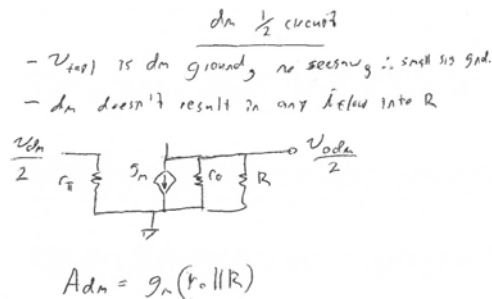 dm 1/2 circuit
- V is dm ground, no : small sig gnd.
- dm doesn't result in any i flow into R
Vdm/2 rπ gm ro R Vodm/2
Adm = gm(ro||R)